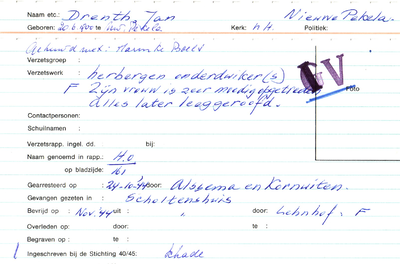 Naam etc.: Drenth, Jan Nieuwe Pekela.
Geboren: 20.6.1900 te Kerk: n.H. Politiek:
Gehuwd met: Harmke
Verzetsgroep :
Verzetswerk : herbergen onderduiker(s)
F Zijn vrouw is zeer moedig opgetreden
Alles later leeggeroofd.
GV
Foto
Contactpersonen:
Schuilnaam :
Verzetsrapp, ingel. dd. bij:
Naam genoemd in rapp.: H.O
op bladzijde: 161
Gearresteerd op : 24-10-'44 door: Alssema en Kornuiten.
Gevangen gezeten in : Scholtenshuis
Bevrijd op : Nov.'44 uit : " door: Lehnhof. F
Overleden op: door: te :
Begraven op : te :
Ingeschreven bij de Stichting 40/45: